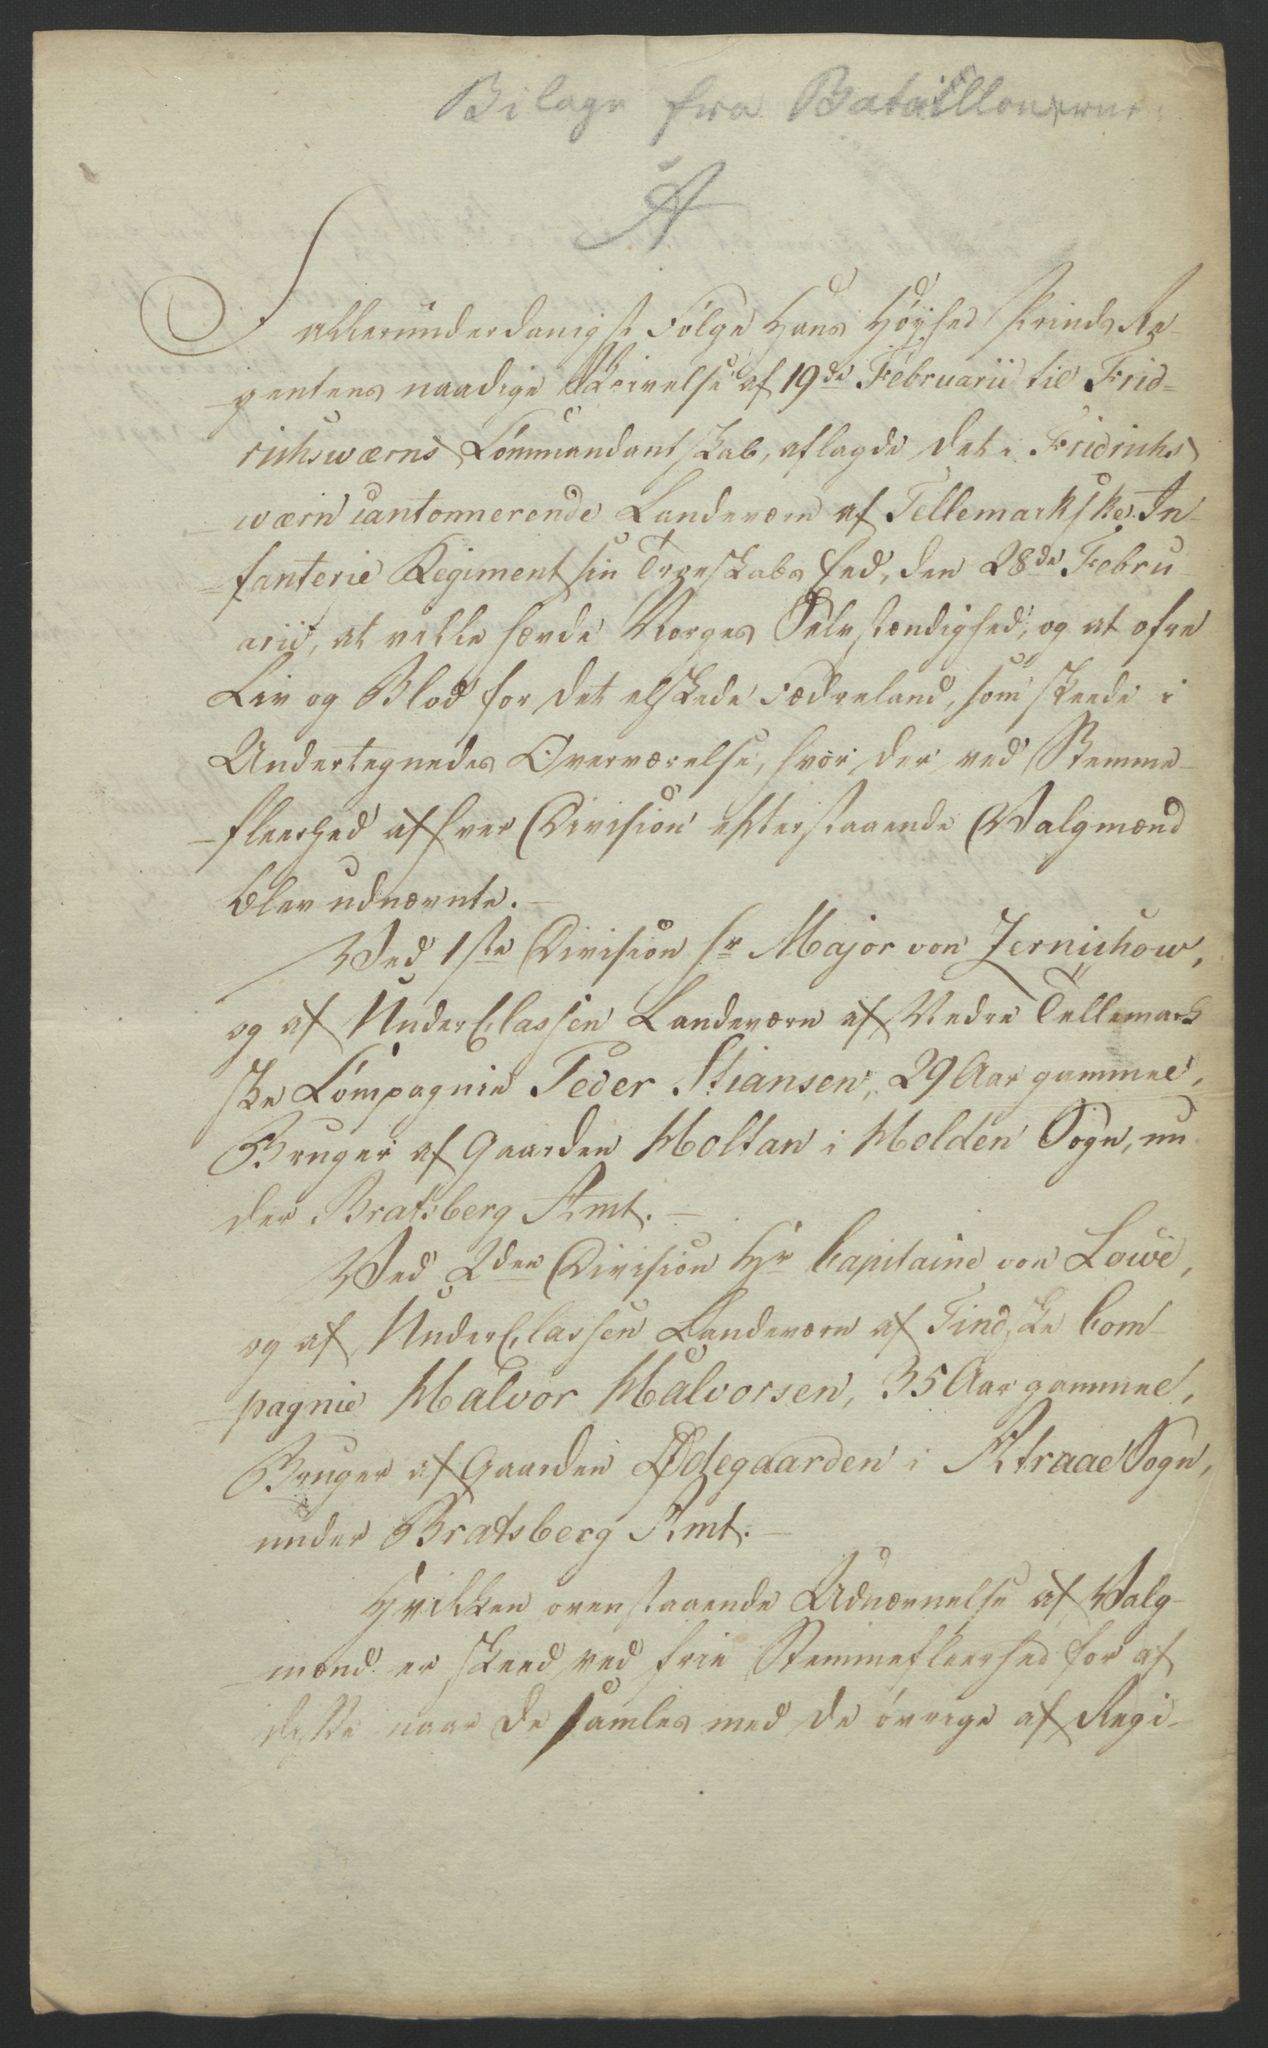 Bilage fra Bataillonerne
A
I
allerunderdanigst Følge Hans Høyhed Prinds Re-
gentens naadige Skrivelse af 19de Februarii til Frid-
richswærns Commandantskab, aflagde det i Fridrichs
wærn cantonnerende Landeværn af Tellemarkske In-
fanterie Regiment sin Troeskabs Eed, den 28de Febru
arii, at ville hævde Norges Selvstændighed, og at ofre
Liv og Blod for det elskede Fædreland, som skeede i
Undertegnedes Overværelse, hvor der ved Stemme-
fleerhed af hver Division efterstaaende Valgmænd
blev udnævnte.-
Ved 1ste Division Hr Major von Zernichow,
og af UnderClassen Landeværn af Nedre Tellemark
ske Compagnie Peder Stiansen, 29 Aar gammel,
Bruger af Gaarden Holtan i Holden Sogn, un
der Bratsberg Amt.-
Ved 2den Division Hr Capitaine von Lowe,
og af UnderClassen Landeværn af Tindske Com-
pagnie Halvor Halvorsen, 35 Aar gammel,
Bruger af Gaarden Ødegaarden i Atraae Sogn,
under Bratsberg Amt.-
Hvilken ovenstaaende Udnævnelse af Valg-
mænd er skeed ved frie Stemmefleerhed for af
disse naar de samles med de øvrige af Regi-